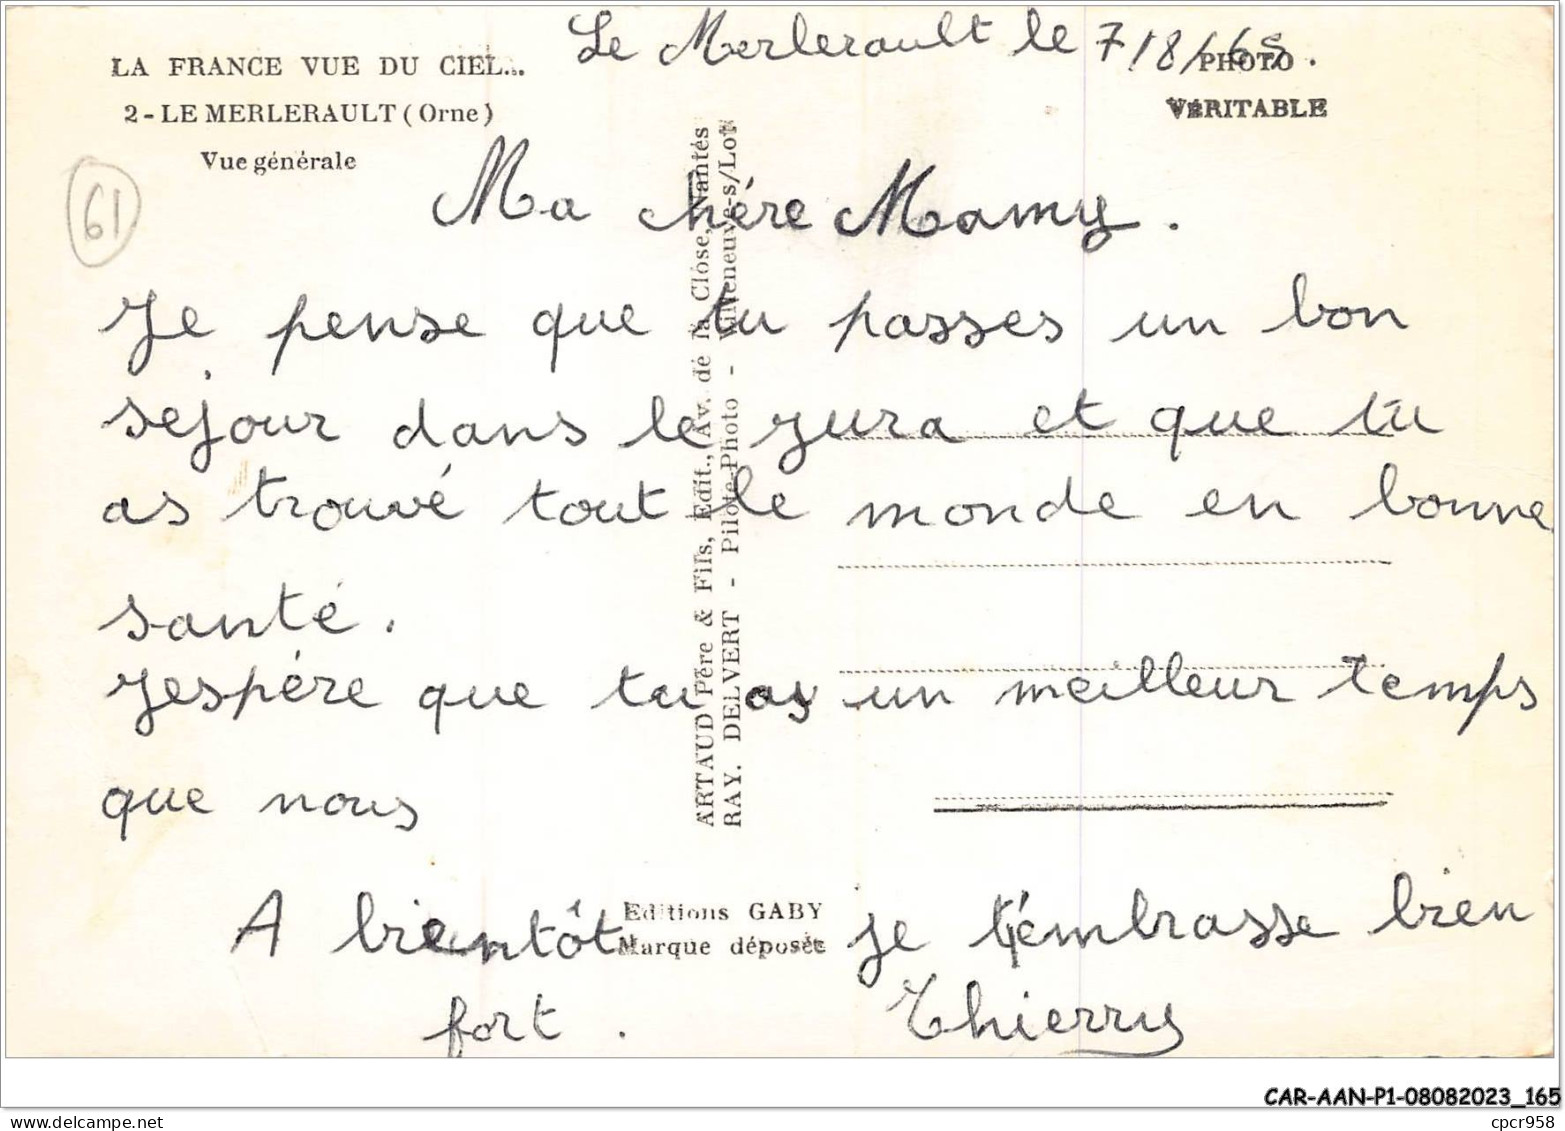 Le Merlerault le 7/8/68.
LA FRANCE VUE DU CIEL...
2 - LE MERLERAULT (Orne)
Vue générale
PHOTO
VÉRITABLE
61
Ma chère Mamy.
Je pense que tu passes un bon
sejour dans le jura et que tu
as trouvé tout le monde en bonne
santé.
Jespére que tu as un meilleur temps
que nous
A bientôt je t'embrasse bien
fort. Thierry
ARTAUD Père & Fils, Edit., Av. de la Close, Nantes
RAY. DELVERT - Pilote-Photo - Villeneuve-s/Lot
Editions GABY
Marque déposée
CAR-AAN-P1-08082023_165
cpcr958